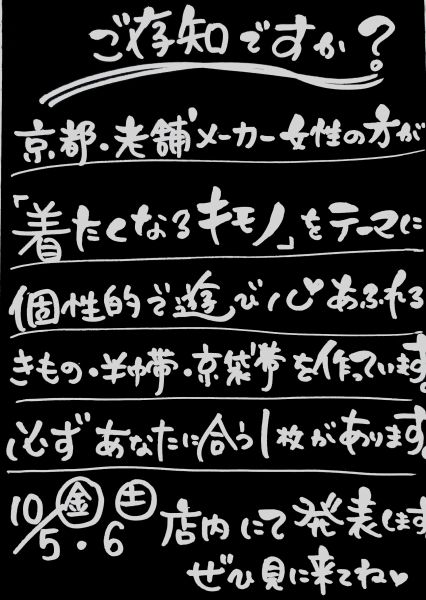 ご存知ですか?
京都・老舗メーカー女性の方が
「着たくなるキモノ」をテーマに
個性的で遊び心あふれる
きもの・半巾帯・京袋帯を作っています。
必ずあなたに合う1枚があります。
10/5㊎・6㊏店内にて発表します
ぜひ見に来てね♥